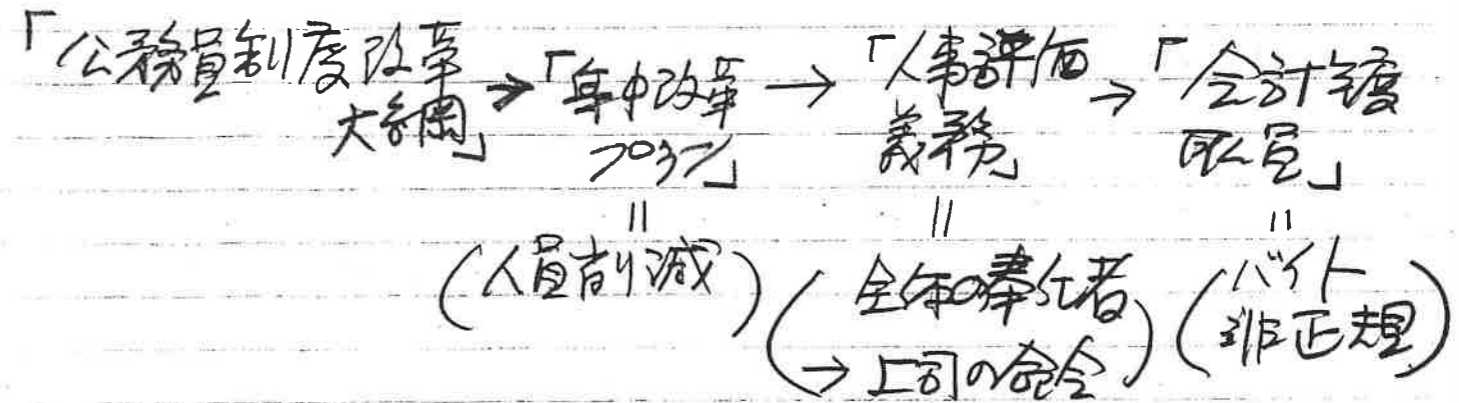 「公務員制度改革大綱」→「集中改革プラン」→「人事評価義務」→「会計年度職員」
＝
(人員削減)
＝
(全体の奉仕者
→上司の命令)
＝
(バイト
非正規)